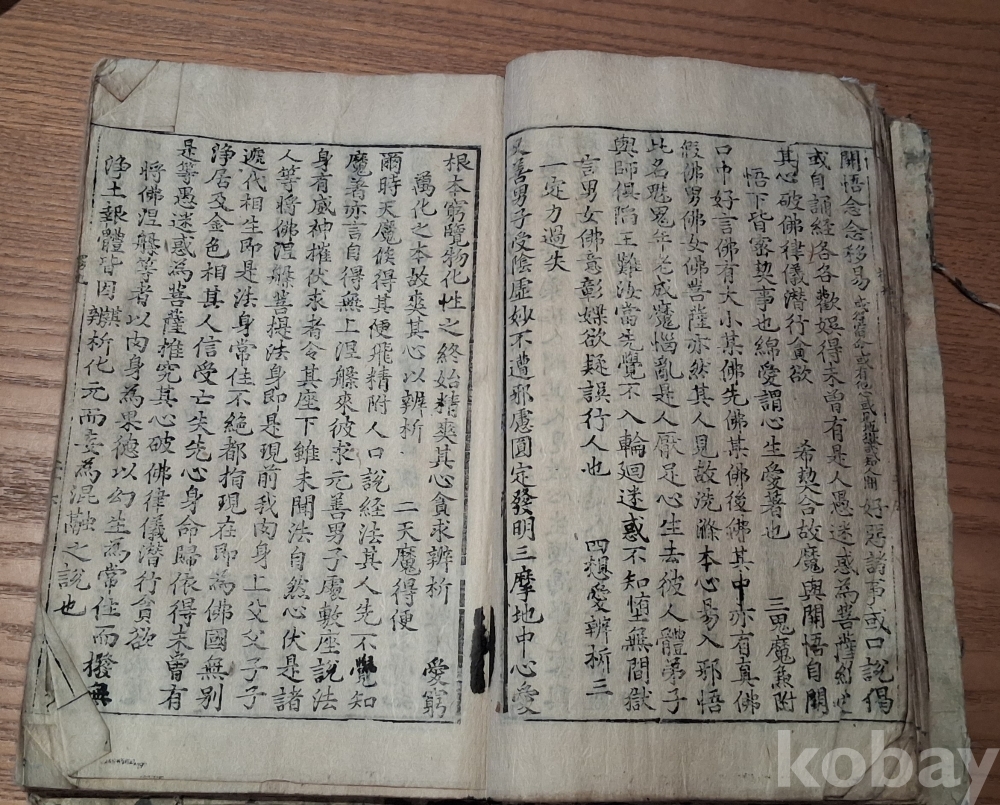 開悟念念移易 好惡諸事或口說偈
或自誦經各各歡娛得未曾有是人愚迷惑為菩薩
其心破佛律儀潛行貪欲 希契合故魔與開悟自開
悟下皆密契事也綿愛謂心生愛著也 三鬼魔魚附
口中好言佛有大小某佛先佛某佛後佛其中亦有真佛
假佛男佛女佛菩薩亦然其人見故洗滌本心易入邪悟
此名魅鬼年老成魔惱亂是人厭足心生去彼人體弟子
與師俱陷王難汝當先覺不入輪迴迷惑不知墮無間獄
言男女佛意彰媒欲疑誤行人也 四想愛辨析三
一定力過失
又善男子受陰虛妙不遭邪慮圓定發明三摩地中心愛
根本窮覽物化性之終始精爽其心貪求辨析 愛窮
萬化之本故爽其心以辨析 二天魔得便
爾時天魔候得其便飛精附人口說經法其人先不覺知
魔著亦言自得無上涅槃來彼求元善男子處敷座說法
身有威神摧伏求者令其座下雖未聞法自然心伏是諸
人等將佛涅槃菩提法身即是現前我肉身上父父子子
遞代相生即是法身常住不絕都指現在即為佛國無別
淨居及金色相其人信受亡失先心身命歸依得未曾有
是等愚迷惑為菩薩推究其心破佛律儀潛行貪欲
將佛涅槃等者以肉身為果德以幻生為常住而撥無
淨土報體皆因其辨析化元而妄為混融之說也
kobay